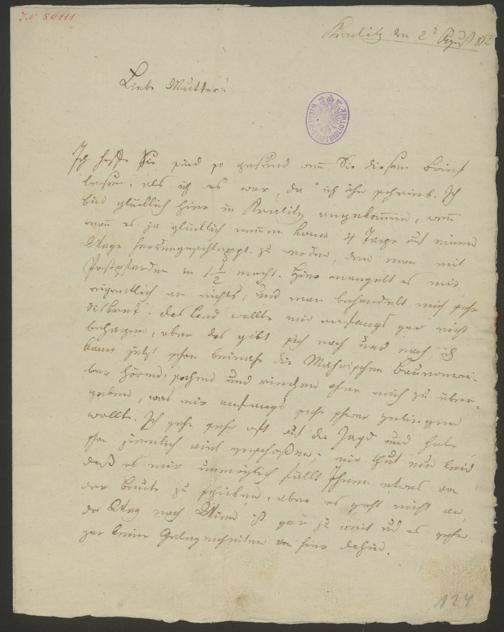 I.N. 80111
Kralitz den 2t August
Liebe Mutter!
Ich hoffe Sie sind so gesund wenn Sie diesen Brief
lesen, als ich es war, da ich ihn schrieb. Ich
bin glücklich hier in Kralitz angekommen, wenn
man es ja glücklich nennen kann 4 Tage auf einem
Wege herumgeschleppt zu werden, den man mit
Postpferden in 1 1/2 macht. Hier mangelt es mir
eigentlich an nichts, und man behandelt mich sehr
diskret. Das Land wollte mir anfangs gar nicht
behagen, aber das gibt sich nach und nach, ich
kann jetzt schon beinahe die Mährischen
hören, und riechen ohne mich zu über-
geben, was mir anfangs sehr schwer gelingen
wollte. Ich gehe sehr oft auf die Jagd und habe
schon ziemlich viel geschossen; mir thut nur leid
daß es mir unmöglich fällt Ihnen etwas von
der Beute zu schicken, aber es geht nicht an,
der Weg nach Wien ist gar zu weit und es gehen
gar keine Gelegenheiten von hier dahin.
124